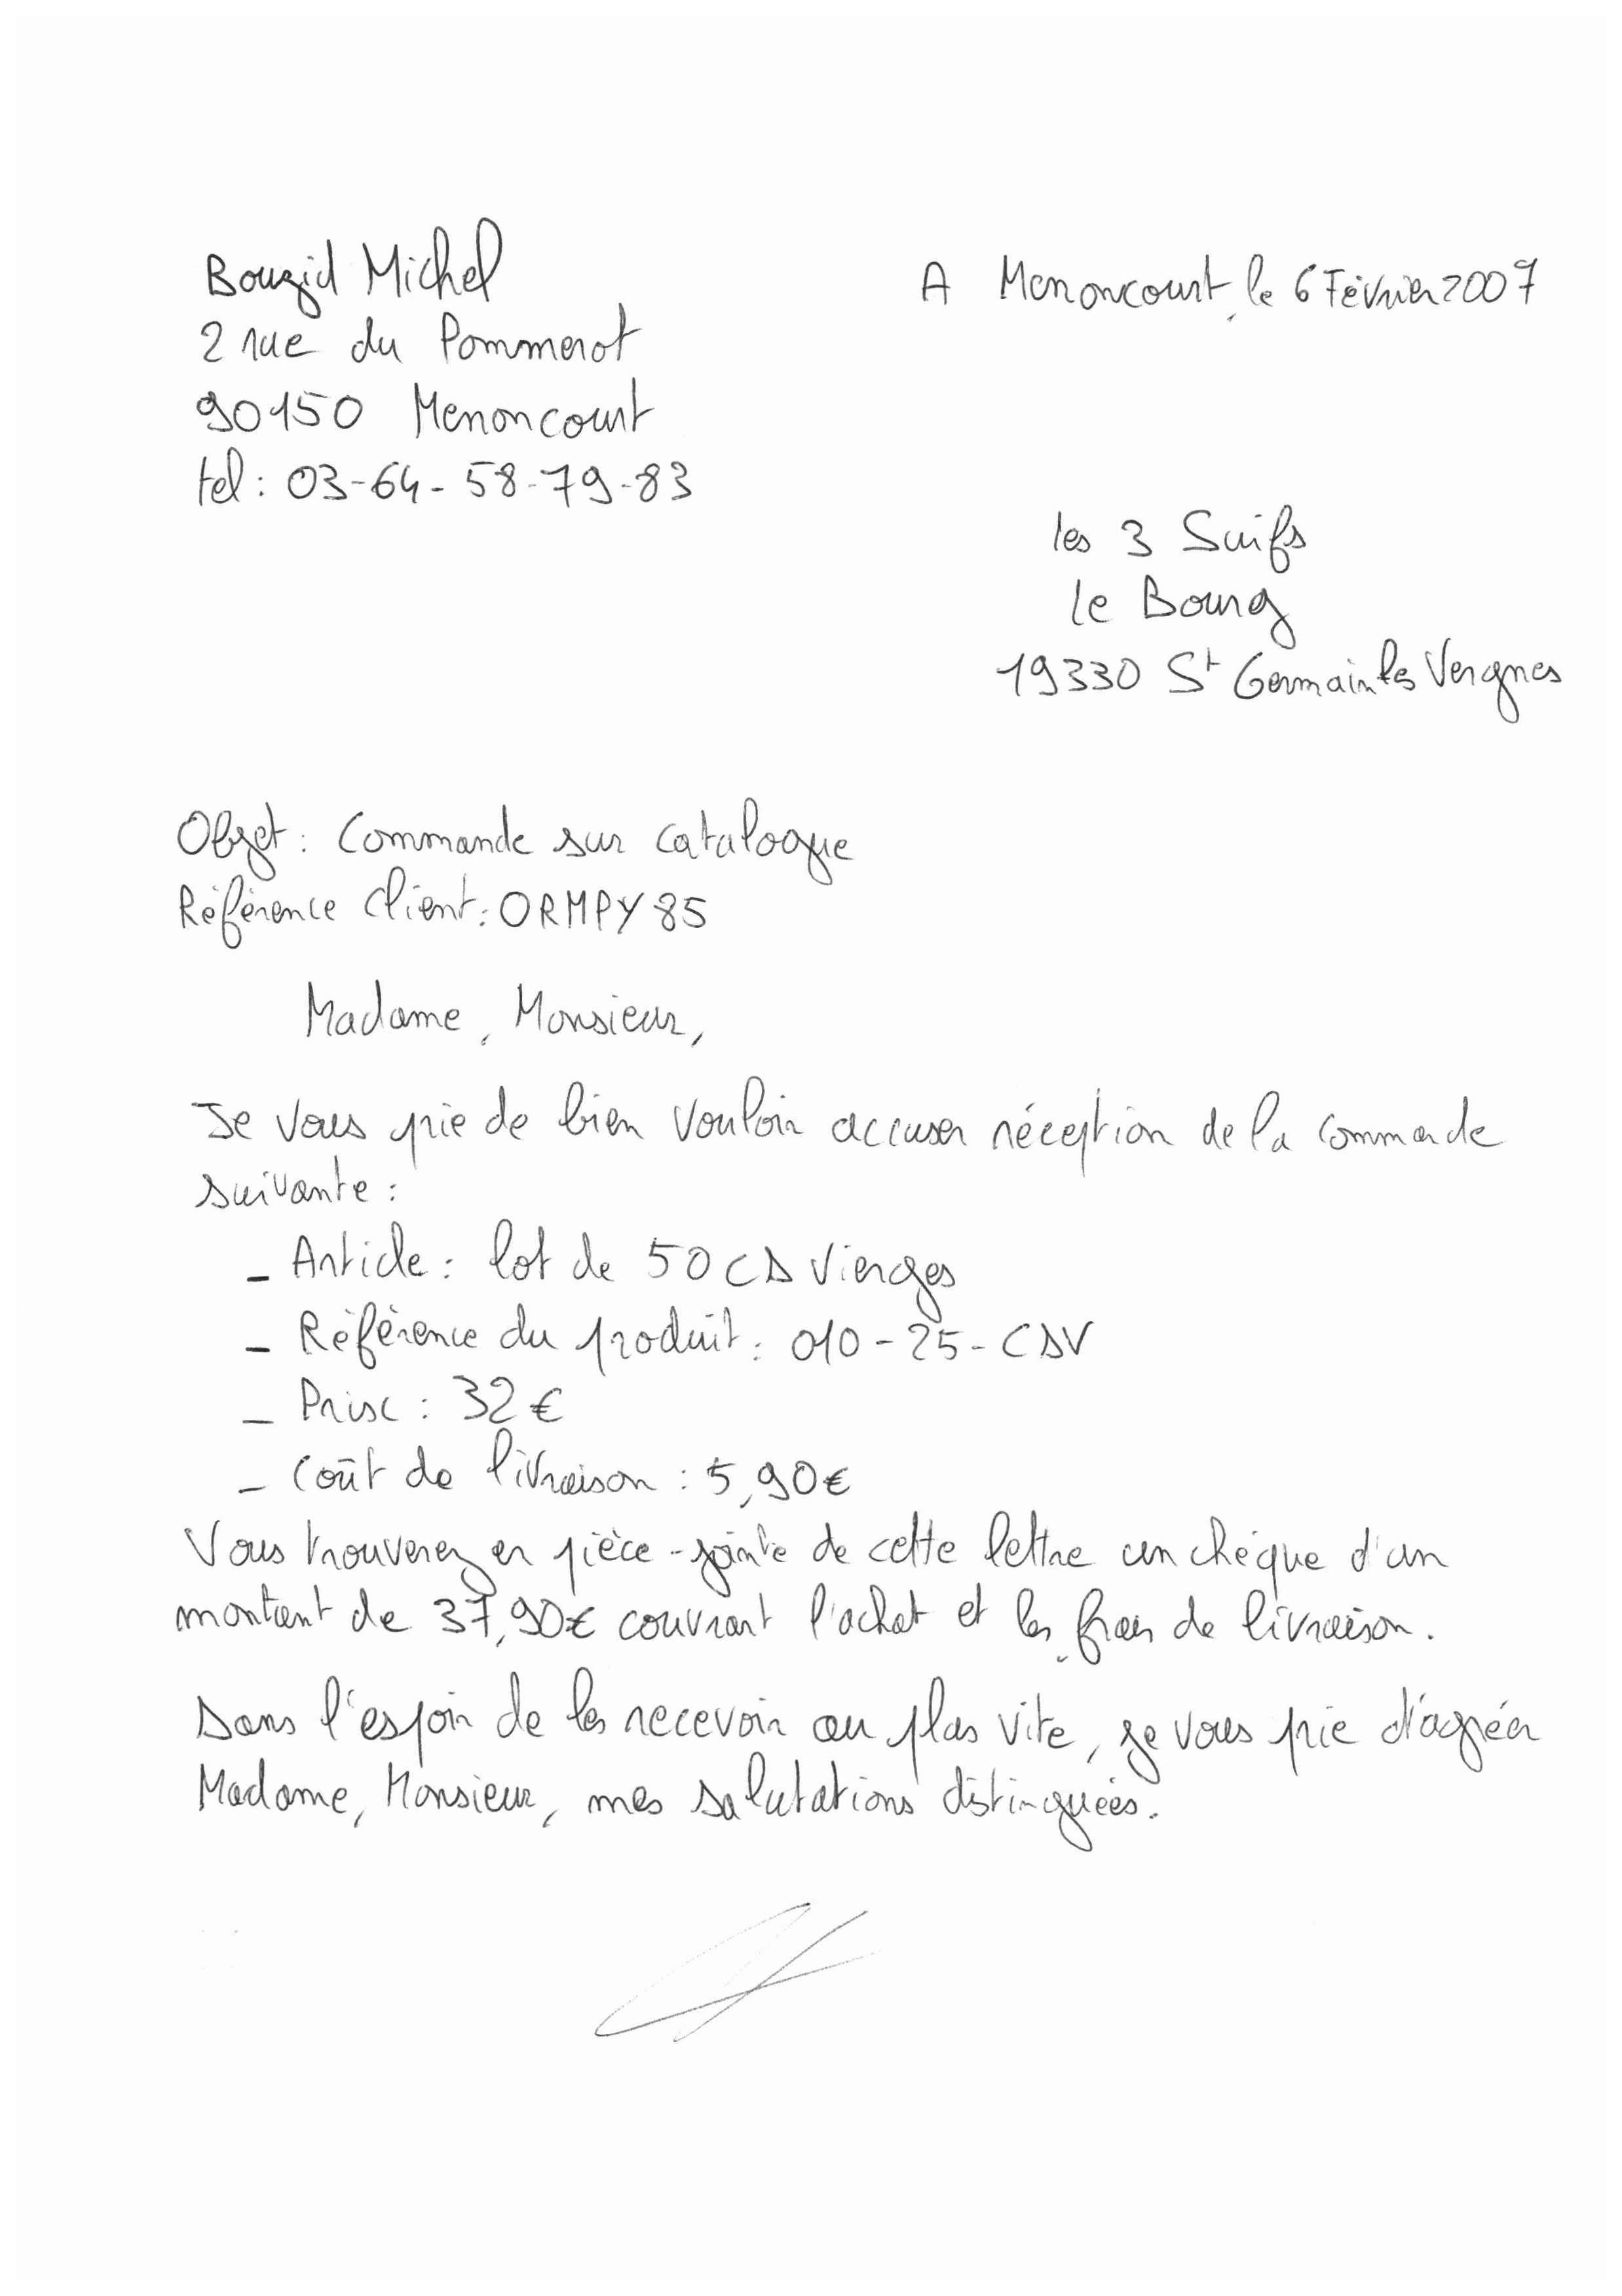 Bouzid Michel
A Menoncourt, le 6 Février 2007
2 rue du Pommerot
90150 Menoncourt
tel : 03-64-58-79-83
les 3 Suifs
le Bourg
19330 St Germain les Vergnes
Objet : Commande sur catalogue
Référence client : ORMPY85
Madame, Monsieur,
Je vous prie de bien vouloir accuser réception de la commande
suivante :
- Article : lot de 50 CD Vierges
- Référence du produit : 010-25-CDV
- Prix : 32€
- Coût de livraison : 5,90€
Vous trouverez en pièce-jointe de cette lettre un chèque d'un
montant de 37,90€ couvrant l'achat et les frais de livraison.
Dans l'espoir de les recevoir au plus vite, je vous prie d'agréer
Madame, Monsieur, mes salutations distinguées.